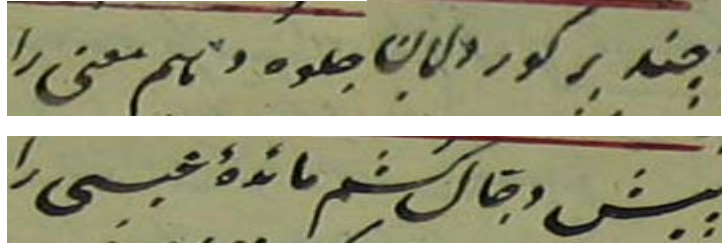 چند بر کور دلان جلوه دهم معنی را
پیش دجال کشم مائدهٔ عیسی را